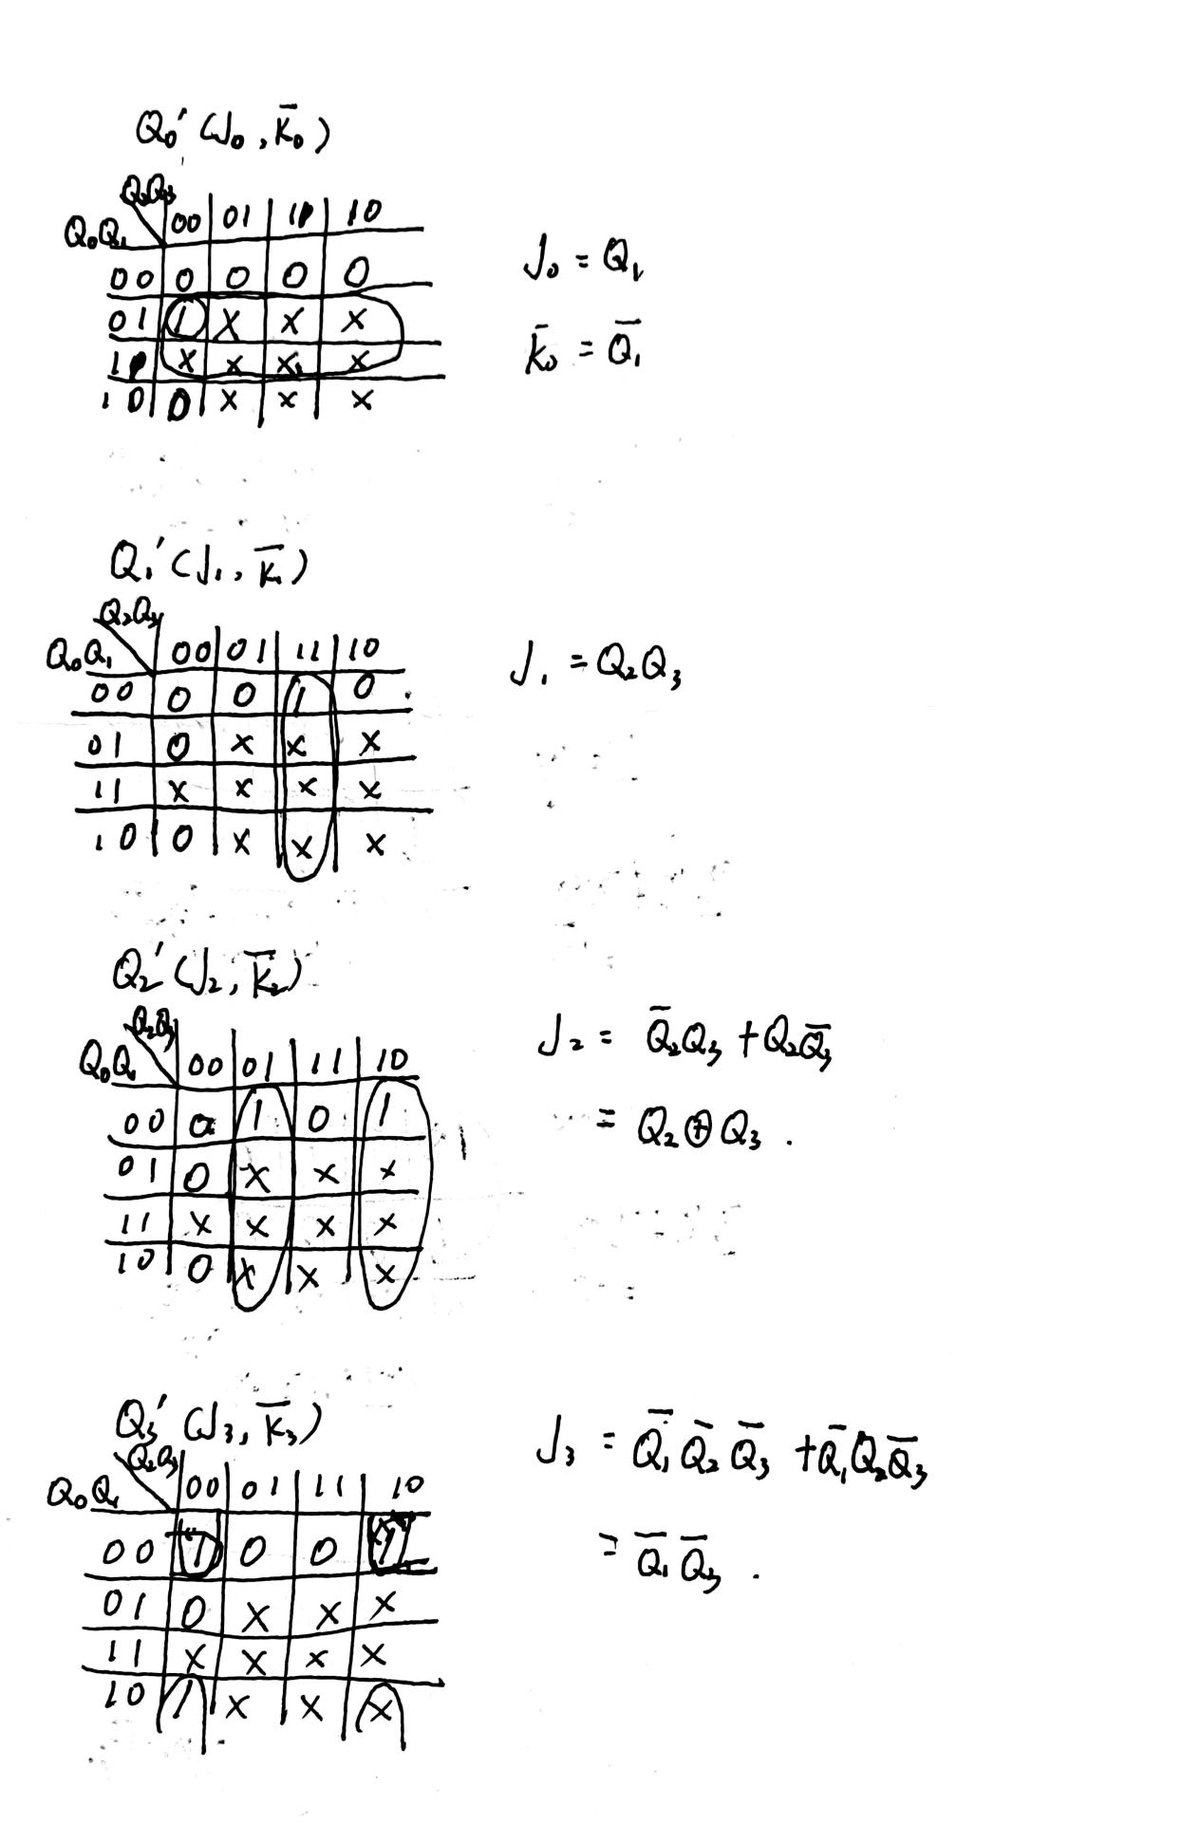 Q₀′ (J₀, K̄₀)
Q₂Q₃
Q₀Q₁ 00 01 11 10
00 0 0 0 0
01 1 X X X
11 X X X X
10 0 X X X
J₀ = Q₁
K̄₀ = Q̄₁
Q₁′ (J₁, K̄₁)
Q₂Q₃
Q₀Q₁ 00 01 11 10
00 0 0 1 0
01 0 X X X
11 X X X X
10 0 X X X
J₁ = Q₂Q₃
Q₂′ (J₂, K̄₂)
Q₂Q₃
Q₀Q₁ 00 01 11 10
00 0 1 0 1
01 0 X X X
11 X X X X
10 0 X X X
J₂ = Q̄₂Q₃ + Q₂Q̄₃
= Q₂⊕Q₃ .
Q₃′ (J₃, K̄₃)
Q₂Q₃
Q₀Q₁ 00 01 11 10
00 1 0 0 1
01 0 X X X
11 X X X X
10 1 X X X
J₃ = Q̄₁Q̄₂Q̄₃ + Q̄₁Q₂Q̄₃
= Q̄₁Q̄₃ .